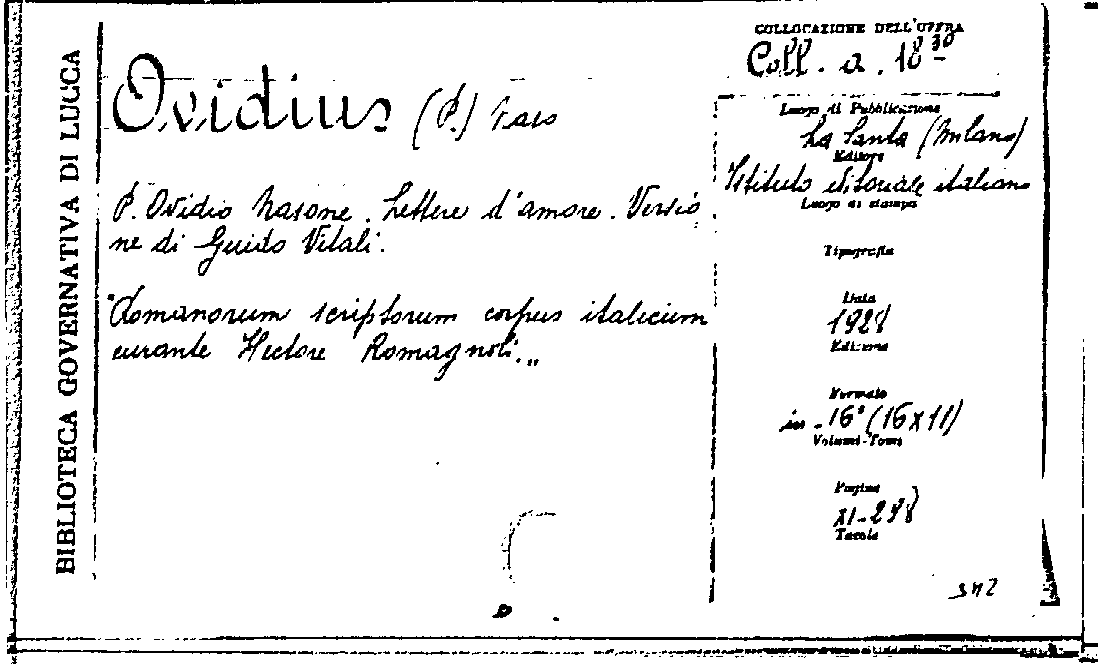 BIBLIOTECA GOVERNATIVA DI LUCCA
Ovidius (P.) Naso
P. Ovidio Nasone. Lettere d'amore. Versio
ne di Guido Vitali.
"Romanorum scriptorum corpus italicum
curante Hectore Romagnoli.„
COLLOCAZIONE DELL'OPERA
Coll. a. 18 30
Luogo di Pubblicazione
La Santa (Milano)
Editore
Istituto editoriale italiano
Luogo di stampa
Tipografia
Data
1928
Edizione
Formato
in-16° (16x11)
Volumi-Tomi
Pagine
XI-298
Tavole